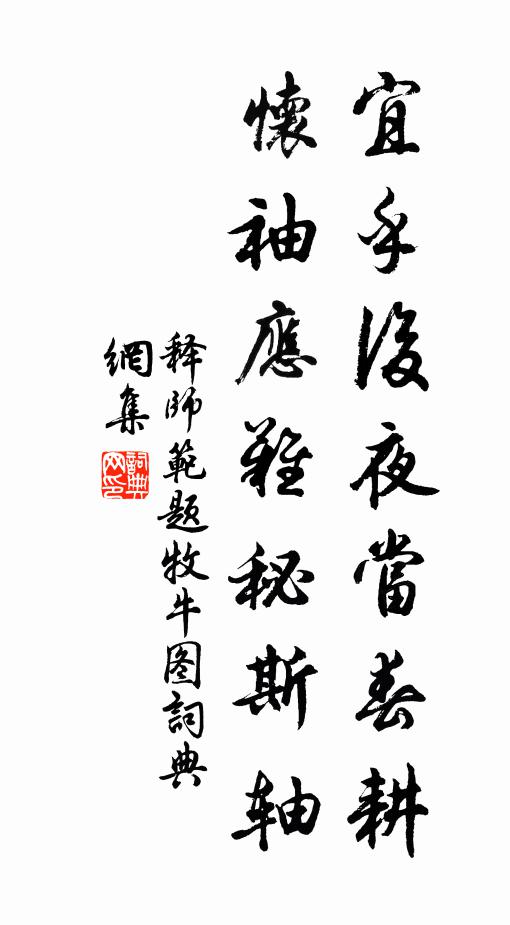 宜乎後夜當春耕
懷袖應難秘斯轴
释師範题牧牛图詞典
網集
詞典
网印